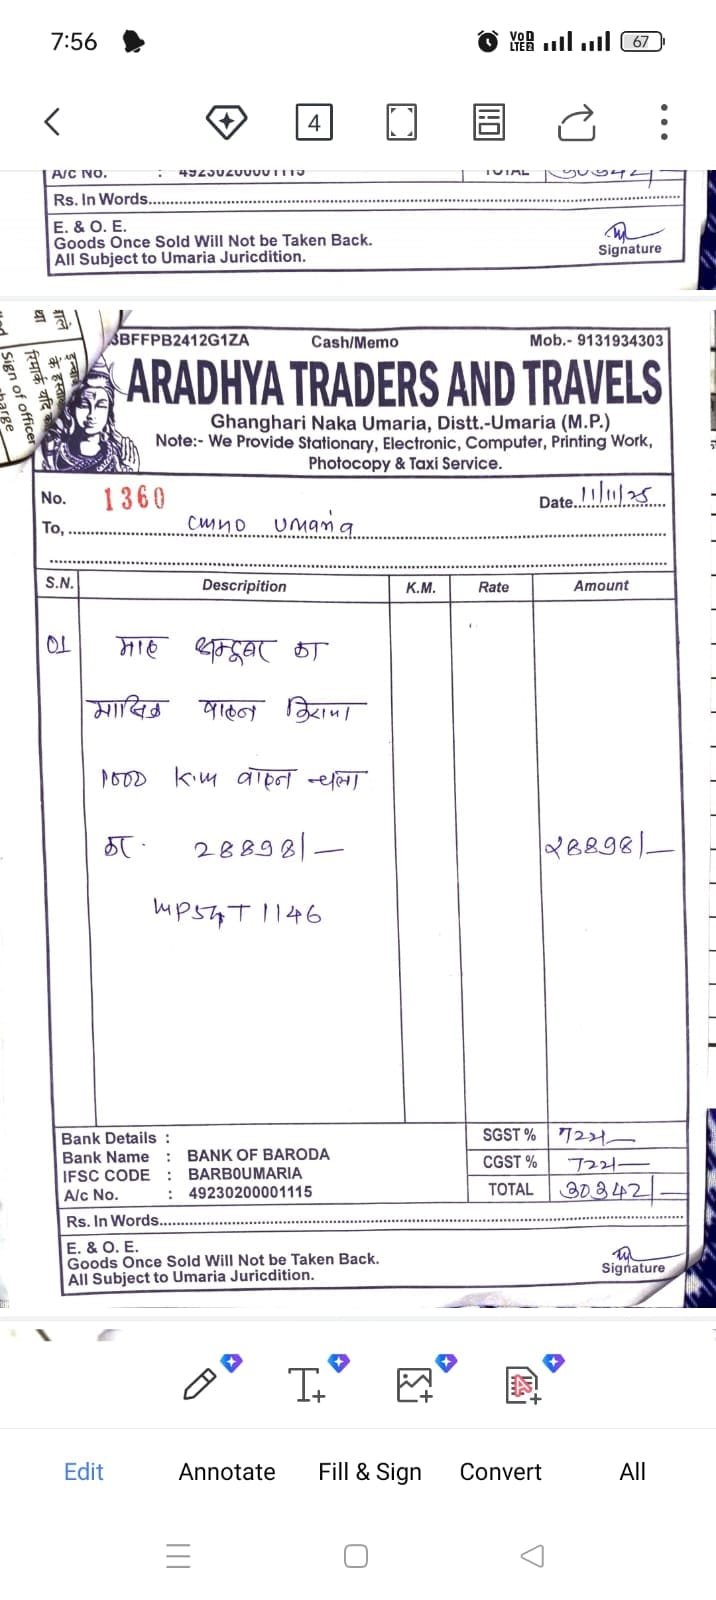 7:56
VoD LTE2 67
4
A/C No. : 49230200001115 TOTAL 30342/-
Rs. In Words...
E. & O. E.
Goods Once Sold Will Not be Taken Back.
All Subject to Umaria Juricdition.
Signature
Sign of officer
3BFFPB2412G1ZA Cash/Memo Mob.- 9131934303
ARADHYA TRADERS AND TRAVELS
Ghanghari Naka Umaria, Distt.-Umaria (M.P.)
Note:- We Provide Stationary, Electronic, Computer, Printing Work,
Photocopy & Taxi Service.
No. 1360 Date. 11/11/25
To, CMHO Umaria
S.N. Descripition K.M. Rate Amount
01 माह अक्टूबर का
मासिक वाहन किराया
1000 K.M वाहन चला
का. 28898/- 28898/-
MP54T1146
Bank Details : SGST % 722/-
Bank Name : BANK OF BARODA CGST % 722/-
IFSC CODE : BARB0UMARIA
A/c No. : 49230200001115 TOTAL 30342/-
Rs. In Words...
E. & O. E.
Goods Once Sold Will Not be Taken Back.
All Subject to Umaria Juricdition.
Signature
Edit Annotate Fill & Sign Convert All